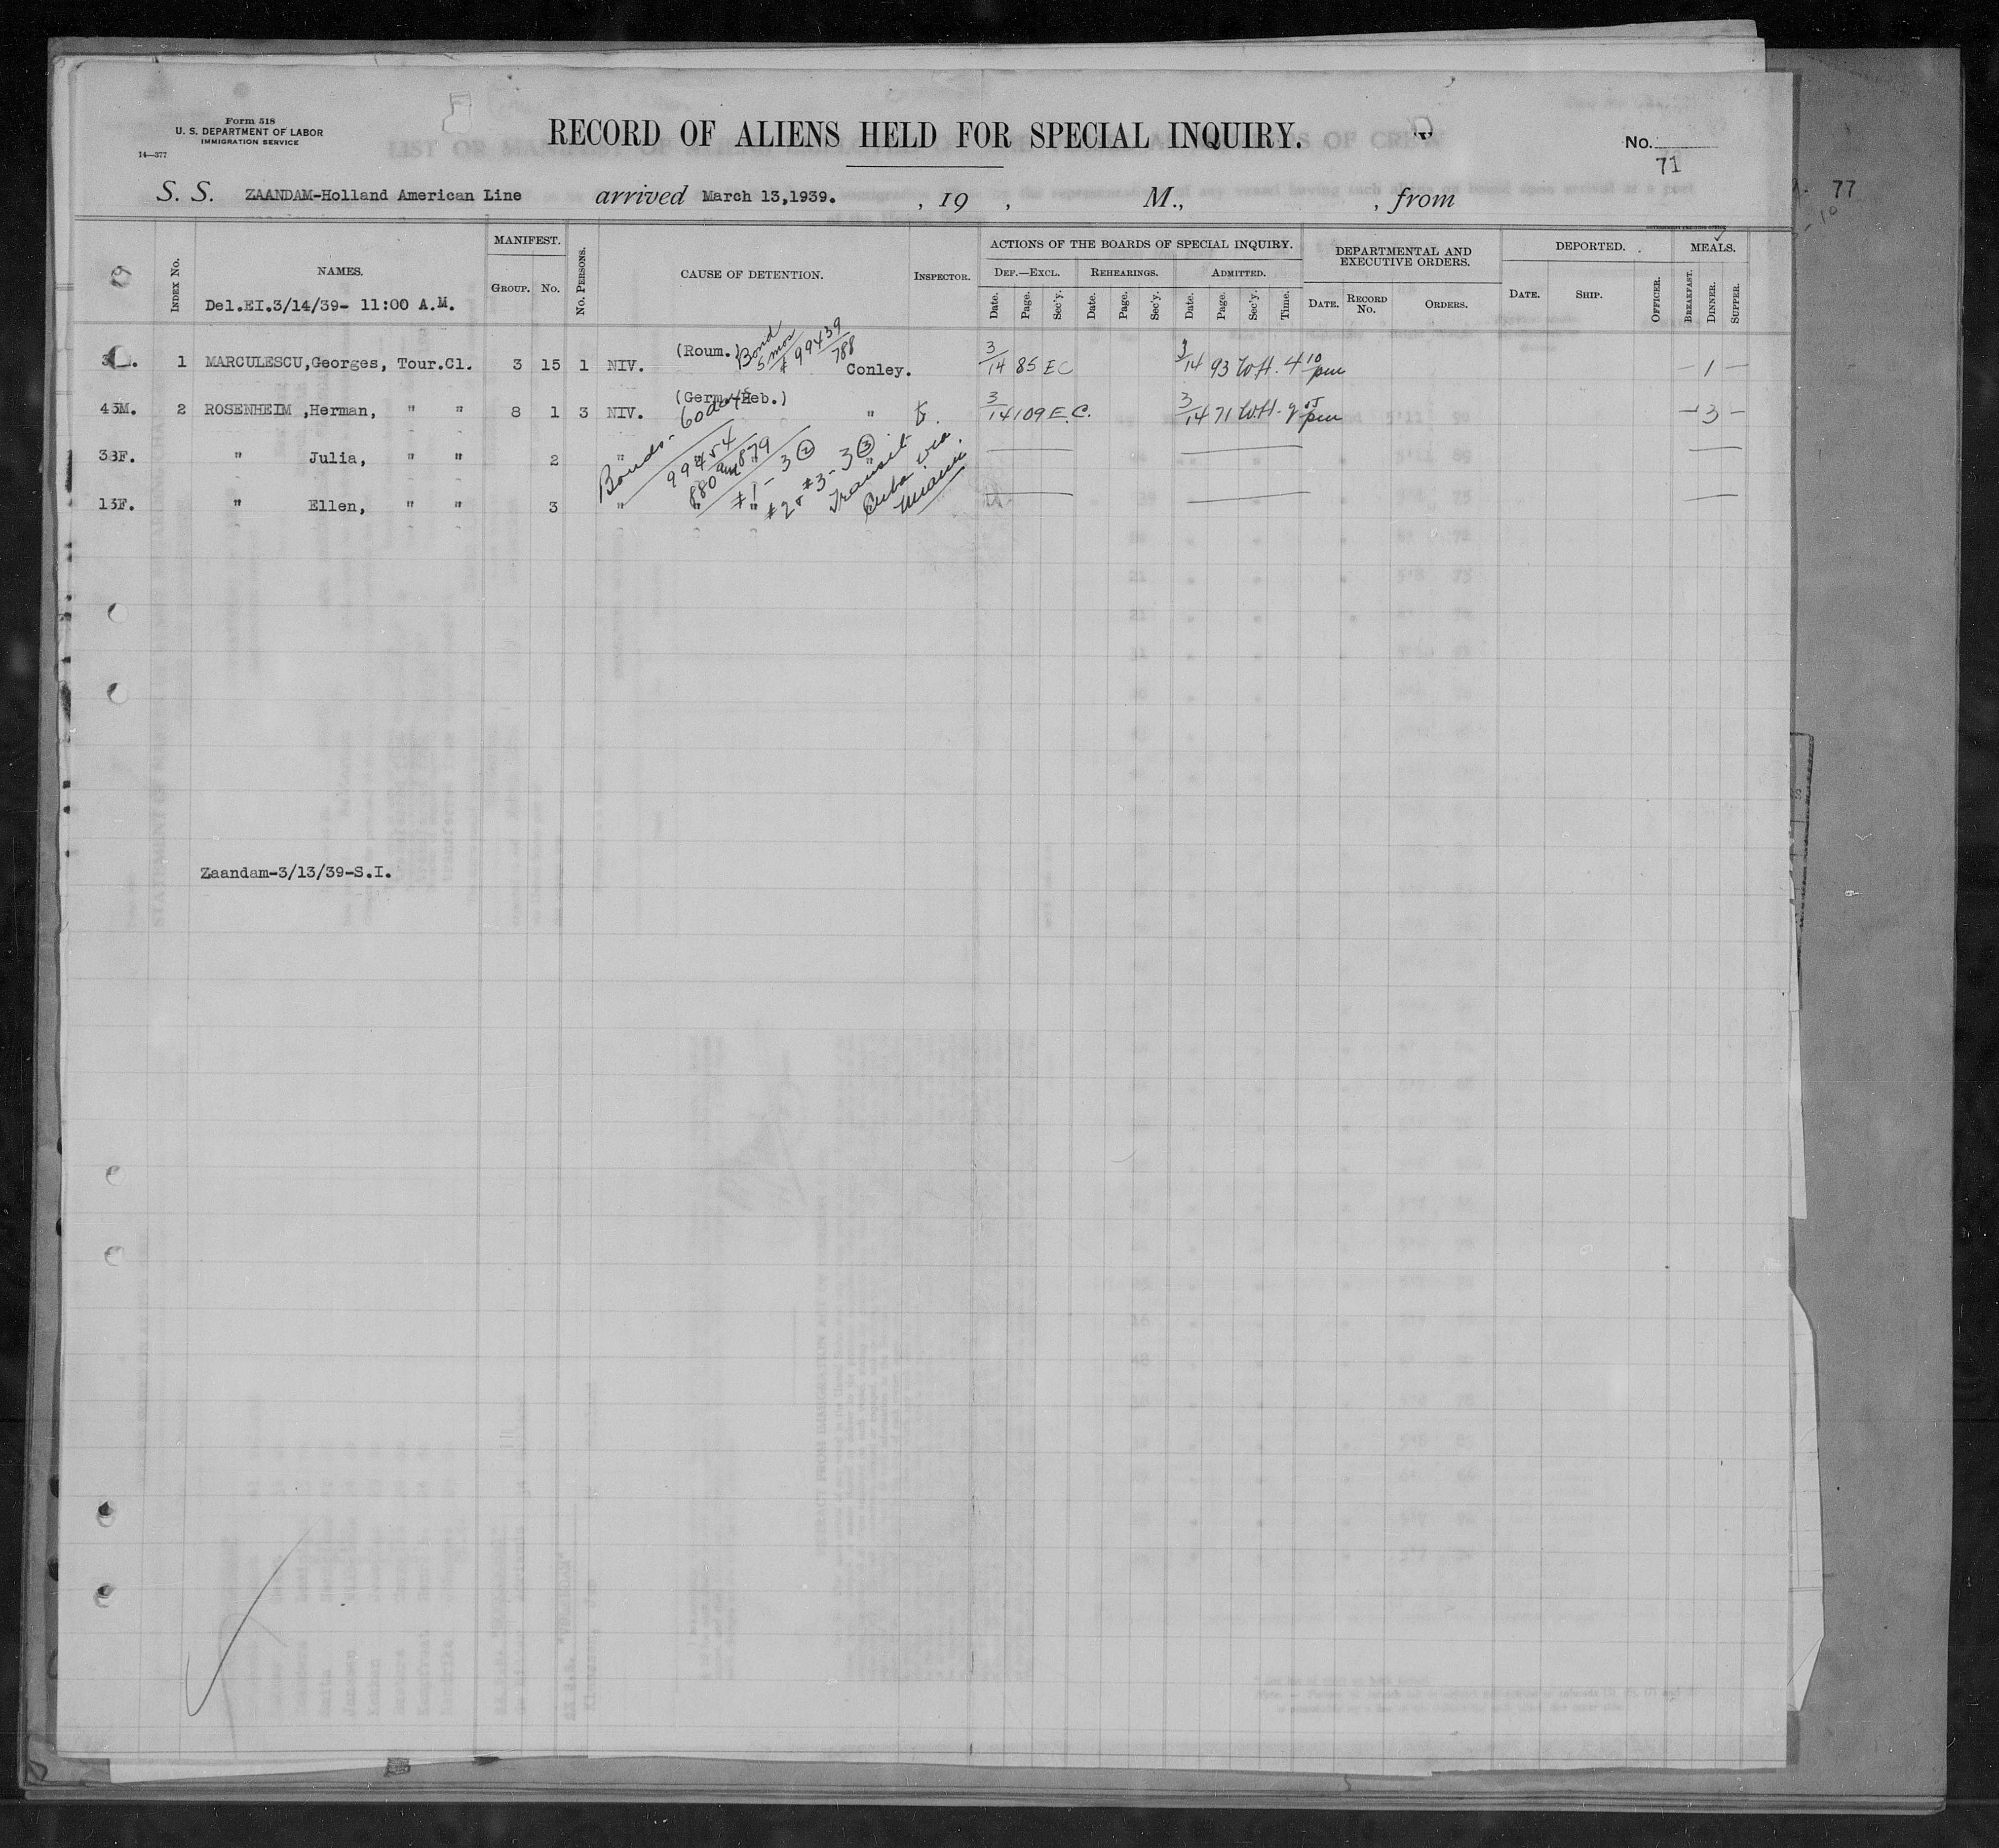 Form 518
U. S. DEPARTMENT OF LABOR
IMMIGRATION SERVICE
14—377
RECORD OF ALIENS HELD FOR SPECIAL INQUIRY.
No.
71
77
S. S. ZAANDAM-Holland American Line arrived March 13,1939. , 19 , M., , from
INDEX No. NAMES. MANIFEST. GROUP. No. No. PERSONS. CAUSE OF DETENTION. INSPECTOR. ACTIONS OF THE BOARDS OF SPECIAL INQUIRY. DEF.—EXCL. Date. Page. Sec'y. REHEARINGS. Date. Page. Sec'y. ADMITTED. Date. Page. Sec'y. Time. DEPARTMENTAL AND EXECUTIVE ORDERS. DATE. RECORD No. ORDERS. DEPORTED. DATE. SHIP. OFFICER. MEALS. BREAKFAST. DINNER. SUPPER.
Del.EI.3/14/39- 11:00 A.M.
1 MARCULESCU,Georges, Tour.Cl. 3 15 1 NIV. (Roum.) Bond 5 mos # 99439/788 Conley. 3/14 85 EC 3/14 93 4 10 pm — 1 —
43M. 2 ROSENHEIM ,Herman, " " 8 1 3 NIV. (Germ.Heb.) " 3/14 109 E.C. 3/14 71 pm — 3 —
38F. " Julia, " " 2 " " "
13F. " Ellen, " " 3 " " "
Bonds- 60 days
99454
880 and 879
#1 - 3 ②
#2 & #3 - 3 ③
Transit to
Cuba via
Miami.
Zaandam-3/13/39-S.I.